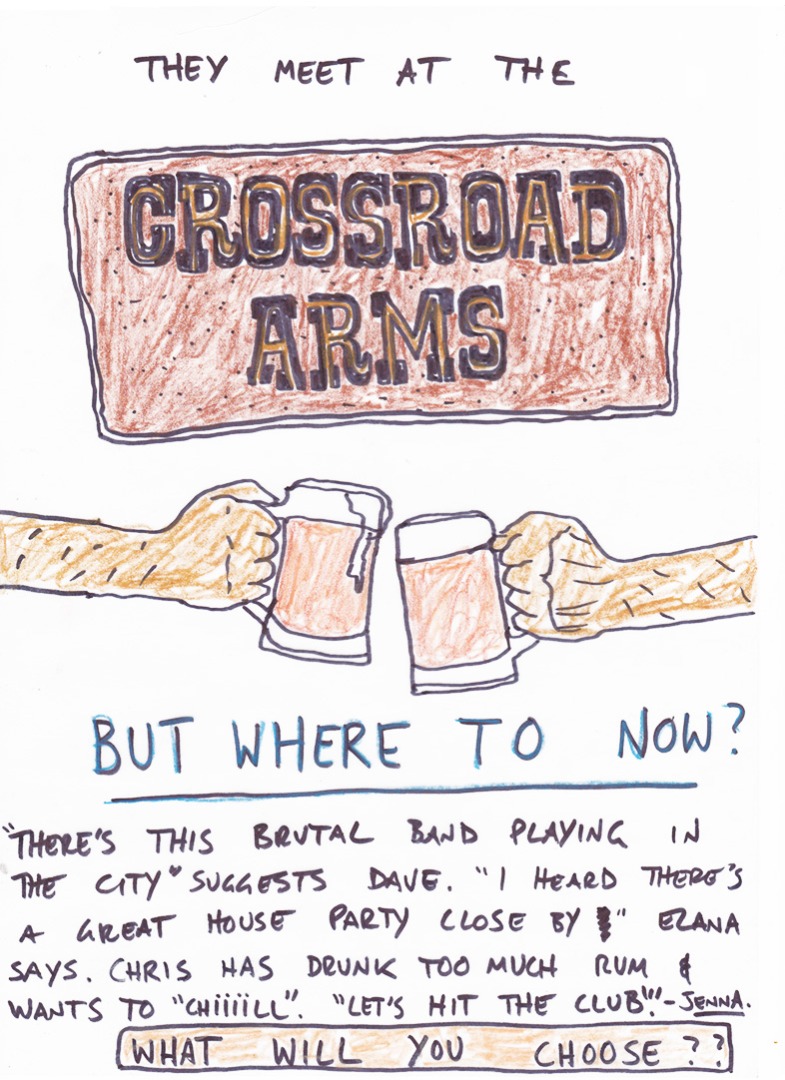 THEY MEET AT THE
CROSSROAD
ARMS
BUT WHERE TO NOW?
"THERE'S THIS BRUTAL BAND PLAYING IN
THE CITY" SUGGESTS DAVE. "I HEARD THERE'S
A GREAT HOUSE PARTY CLOSE BY" EZANA
SAYS. CHRIS HAS DRUNK TOO MUCH RUM &
WANTS TO "CHIIIILL". "LET'S HIT THE CLUB!"-JENNA.
WHAT WILL YOU CHOOSE??